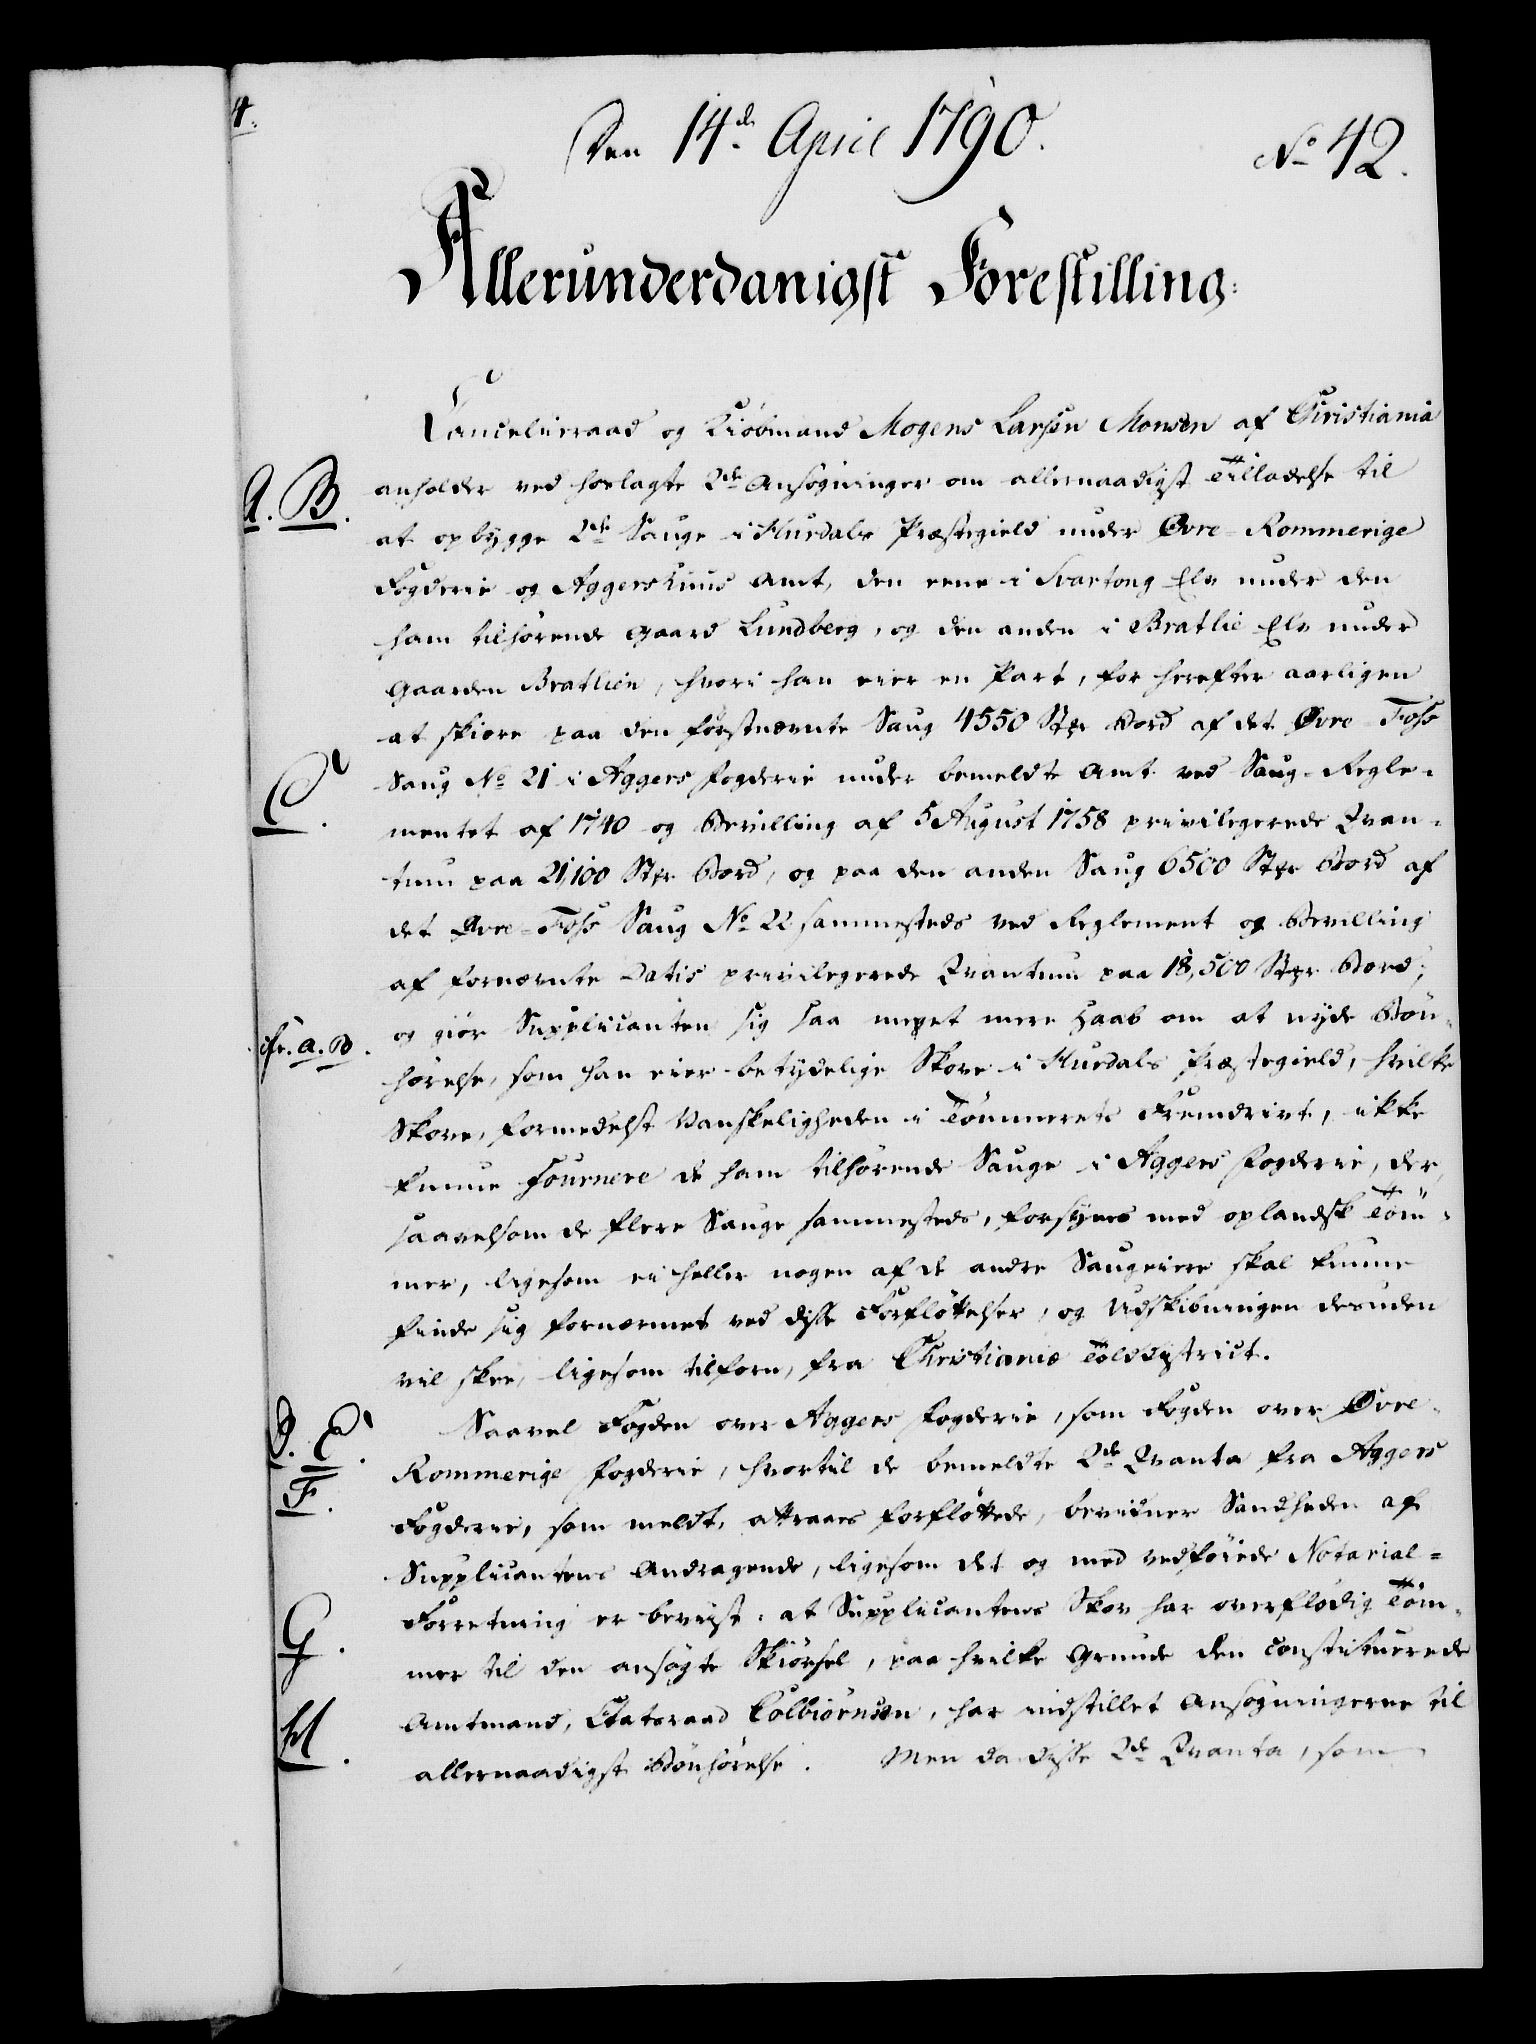 4.
Den 14de April 1790.
No 42.
Allerunderdanigst Forestilling:
Cancelieraad og Kiöbmand Mogens Larsen Monsen af Christiania
A. B. anholder ved hoslagte 2de Ansögninger om allernaadigst Tilladelse til
at opbygge 2de Sauge i Hurdals Præstegield under Øvre-Rommerige
Fogderie og Aggershuus Amt, den eene i Svartong Elv under den
ham tilhörende Gaard Lundberg, og den anden i Bratlie Elv under
Gaarden Bratlien, hvori han eier en Part, for herefter aarligen
at skiöre paa den förstnævnte Saug 4550 Stkr Bord af det Øvre-Foss
C. Saug No 21 i Aggers Fogderie under bemeldte Amt ved Saug-Regle-
mentet af 1740 og Bevilling af 5 August 1758 privilegerede Qvan-
tum paa 21,100 Stkr Bord, og paa den anden Saug 6500 Stkr Bord af
det Øvre-Foss Saug No 22 sammesteds ved Reglement og Bevilling
af fornævnte Datis privilegerede Qvantum paa 18,500 Stkr Bord;
cfr. A. B. og giör Supplicanten sig saa meget mere Haab om at nyde Bön-
hörelse, som han eier betydelige Skove i Hurdals Præstegield, hvilke
Skove, formedelst Vanskeligheden i Tömmerets Fremdrivt, ikke
kunne Fournere de ham tilhörende Sauge i Aggers Fogderie, der,
saavelsom de flere Sauge sammesteds, forsynes med oplandsk Töm-
mer, ligesom ei heller nogen af de andre Saugeiere skal kunne
finde sig fornærmet ved disse Forflöttelser, og Udskibningen desuden
vil skee, ligesom tilforn, fra Christianiæ Tolddistrict.
D. E. Saavel Fogden over Aggers Fogderie, som Fogden over Øvre-
F. Rommerige Fogderie, hvortil de bemeldte 2de Qvanta fra Aggers
Fogderie, som meldt, attraaes forflöttede, bevidner Sandheden af
Supplicantens Andragende, ligesom det og med vedföiede Notarial-
G. Forretning er beviist, at Supplicantens Skov har overflödig Töm-
mer til den ansögte Skiörsel, paa hvilke Grunde den constituerede
H. Amtmand, Etatsraad Colbiörnsen, har indstillet Ansögningerne til
allernaadigst Bönhörelse. Men da disse 2de Qvanta, som